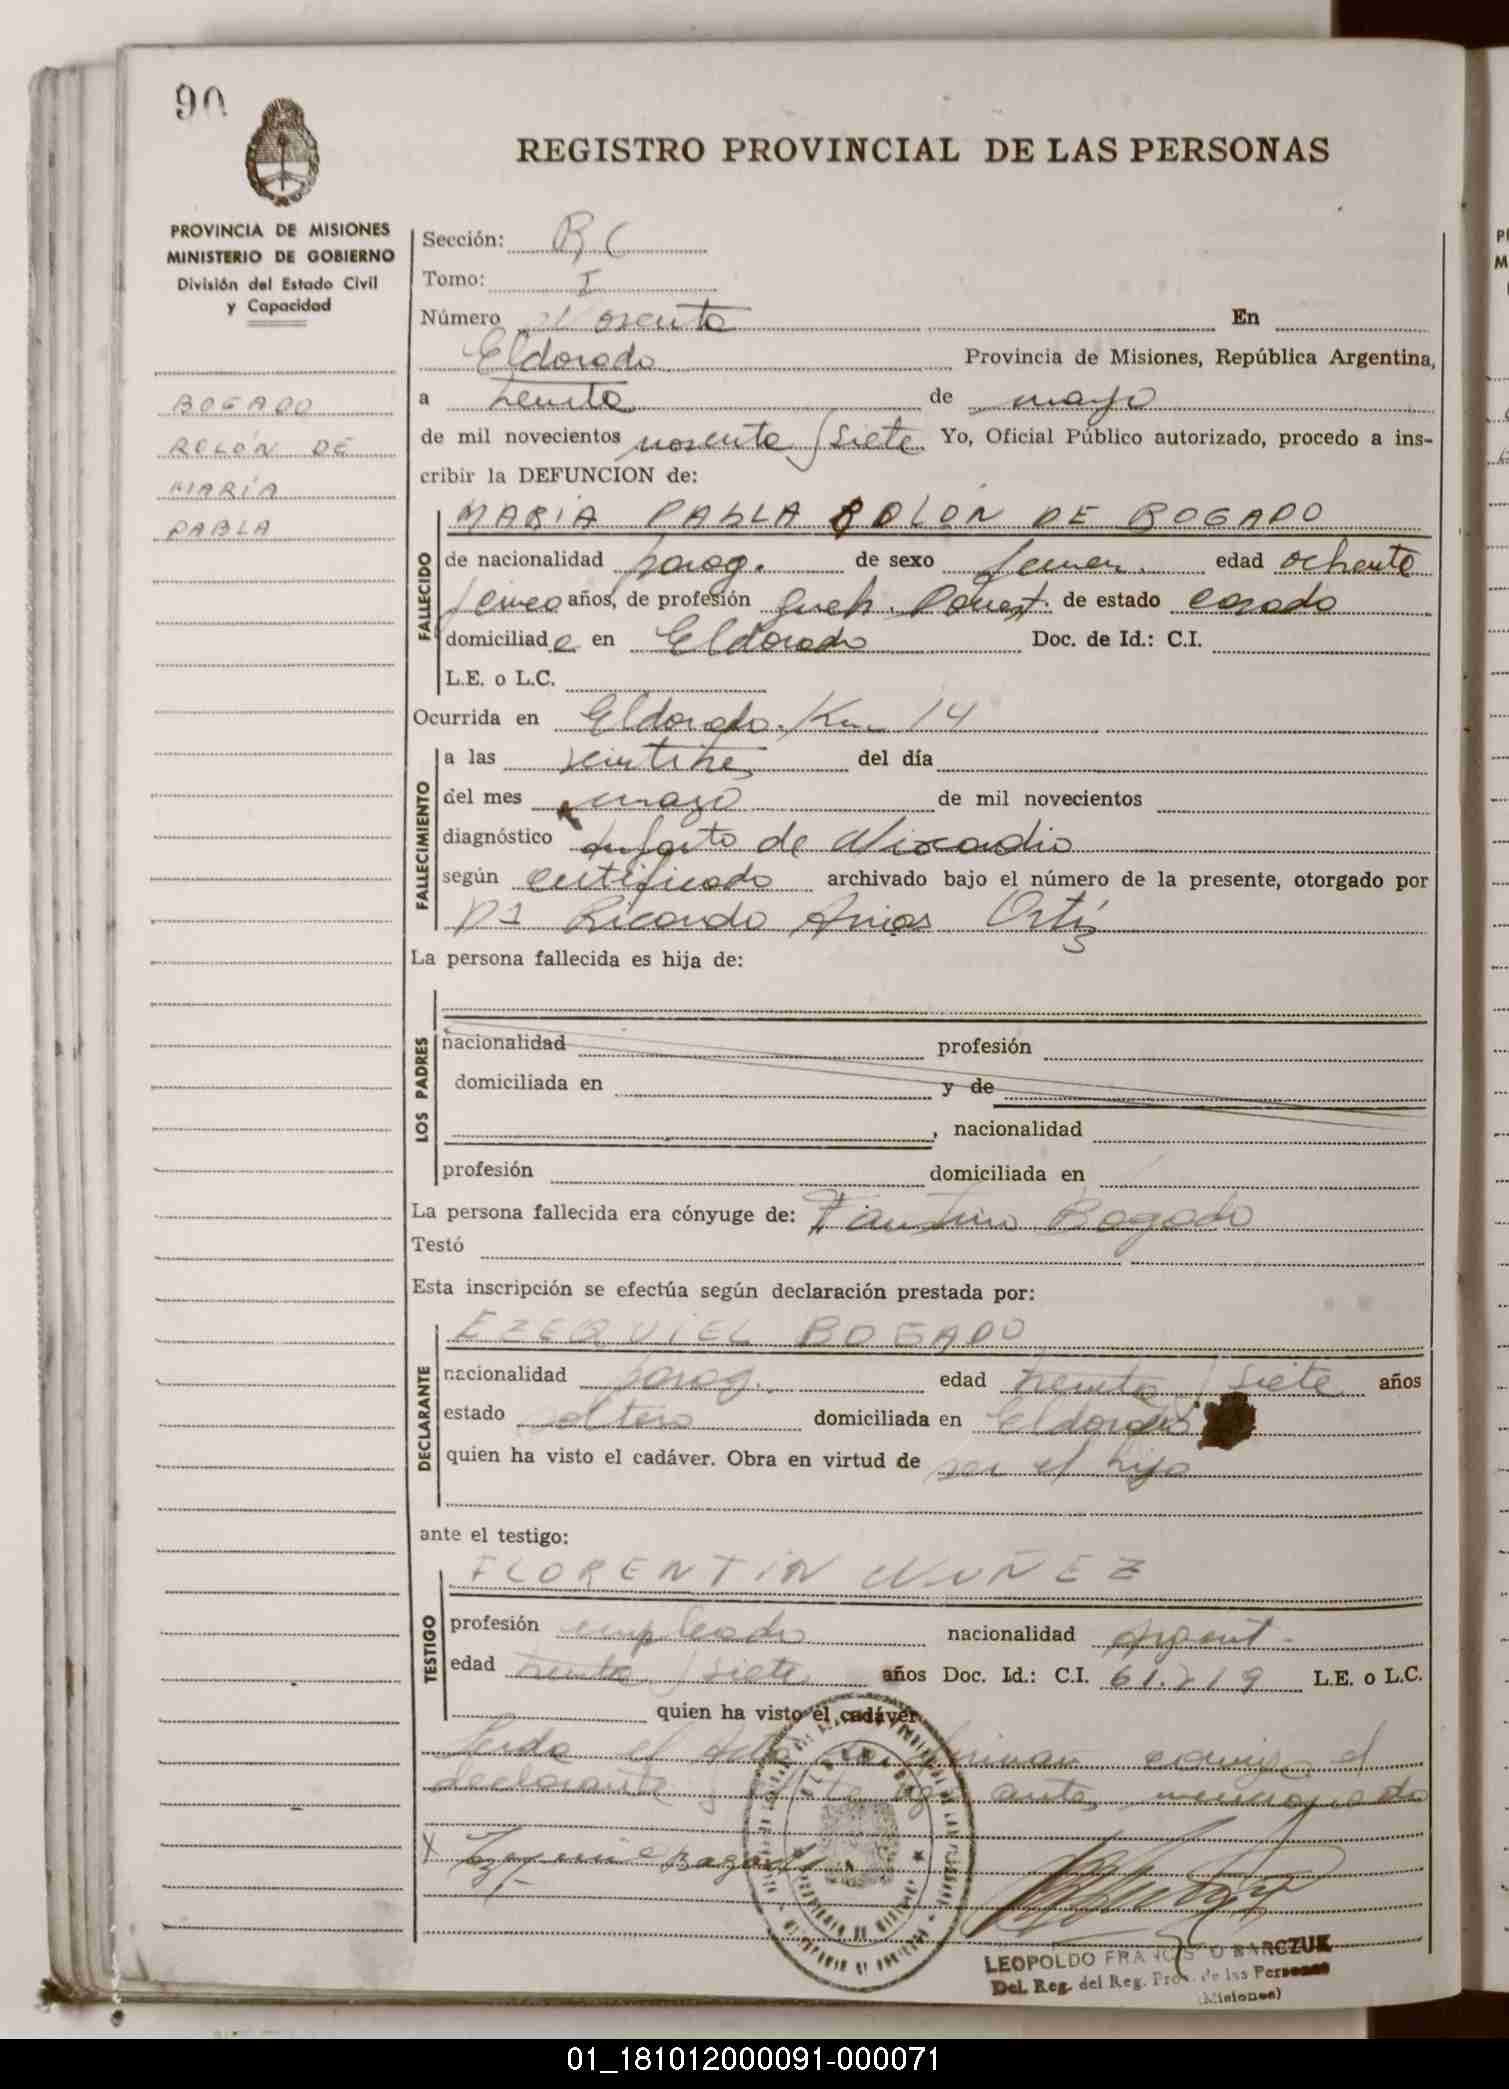 90
REGISTRO PROVINCIAL DE LAS PERSONAS
PROVINCIA DE MISIONES
MINISTERIO DE GOBIERNO
División del Estado Civil
y Capacidad
BOGADO
ROLÓN DE
MARÍA
PABLA
Sección:
Tomo: I
Número Noventa En
Eldorado Provincia de Misiones, República Argentina,
a treinta de mayo
de mil novecientos noventa y siete Yo, Oficial Público autorizado, procedo a ins-
cribir la DEFUNCION de:
MARÍA PABLA ROLÓN DE BOGADO
FALLECIDO
de nacionalidad parag. de sexo femen. edad ochenta
y cinco años, de profesión Queh. Domest. de estado casada
domiciliada en Eldorado Doc. de Id.: C.I.
L.E. o L.C.
Ocurrida en Eldorado. Km 14
FALLECIMIENTO
a las veintitres del día
del mes mayo de mil novecientos
diagnóstico Infarto de Miocardio
según certificado archivado bajo el número de la presente, otorgado por
Ricardo Arias Ortíz
La persona fallecida es hija de:
LOS PADRES
nacionalidad profesión
domiciliada en y de
, nacionalidad
profesión domiciliada en
La persona fallecida era cónyuge de: Faustino Bogado
Testó
Esta inscripción se efectúa según declaración prestada por:
EZEQUIEL BOGADO
DECLARANTE
nacionalidad parag. edad treinta y siete años
estado soltero domiciliada en Eldorado
quien ha visto el cadáver. Obra en virtud de ser el hijo
ante el testigo:
FLORENTÍN NUÑEZ
TESTIGO
profesión empleado nacionalidad Argent.
edad treinta y siete años Doc. Id.: C.I. L.E. o L.C.
quien ha visto el cadáver
Leída el Acta la firman conmigo el
declarante y testigo antes mencionado
X Ezequiel Bogado
LEOPOLDO FRANCISCO BARCZUK
Del. Reg. del Reg. Prov. de las Personas
(Misiones)
01_181012000091-000071